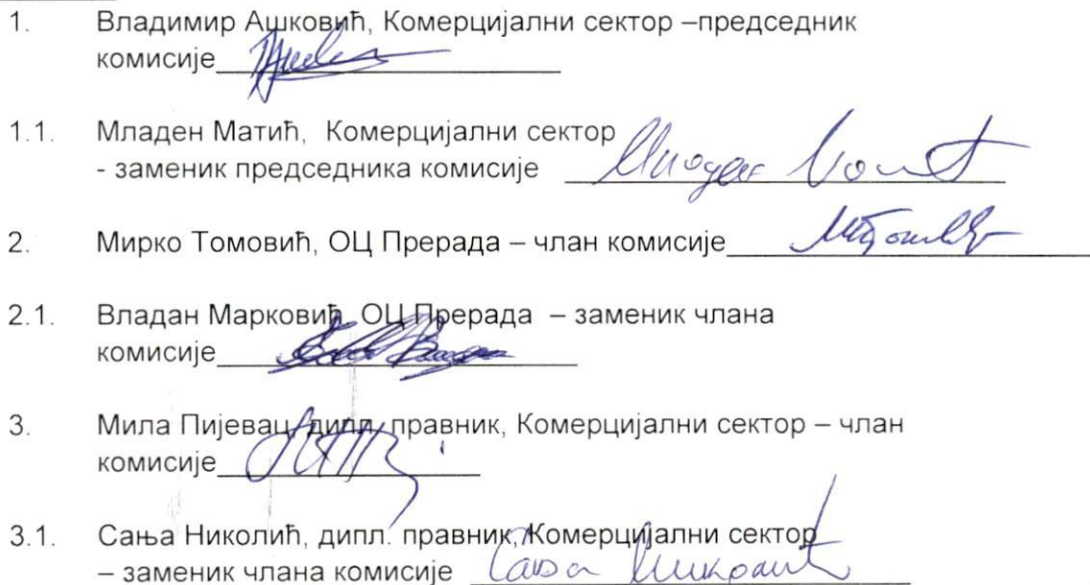 1. Владимир Ашковић, Комерцијални сектор –председник
комисије
1.1. Младен Матић, Комерцијални сектор
- заменик председника комисије
2. Мирко Томовић, ОЦ Прерада – члан комисије
2.1. Владан Марковић, ОЦ Прерада – заменик члана
комисије
3. Мила Пијевац, дипл. правник, Комерцијални сектор – члан
комисије
3.1. Сања Николић, дипл. правник, Комерцијални сектор
– заменик члана комисије